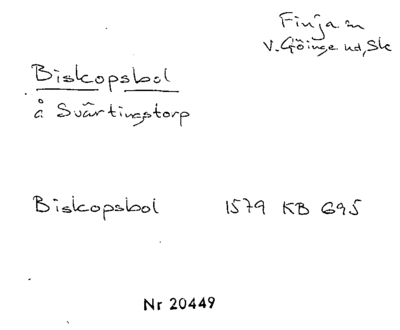 Finja sn
V. Göinge hd, Sk
Biskopsbol
å Svärtingstorp
Biskopsbol 1579 KB 695
Nr 20449